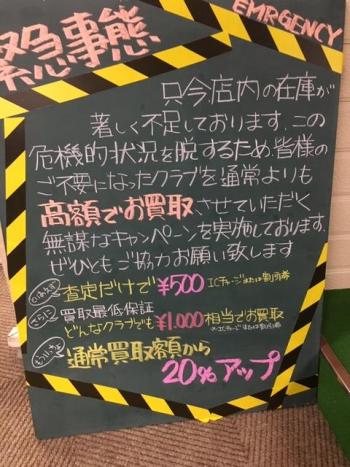 緊急事態
EMRGENCY
只今、店内の在庫が
著しく不足しております。この
危機的状況を脱するため、皆様の
ご不要になったクラブを通常よりも
高額でお買取させていただく
無謀なキャンペーンを実施しております。
ぜひともご協力お願い致します
査定だけで¥500 ICチャージまたは割引券
さらに 買取最低保証
どんなクラブでも¥1.000相当でお買取
※ICチャージまたは割引券
通常買取額から
20%アップ